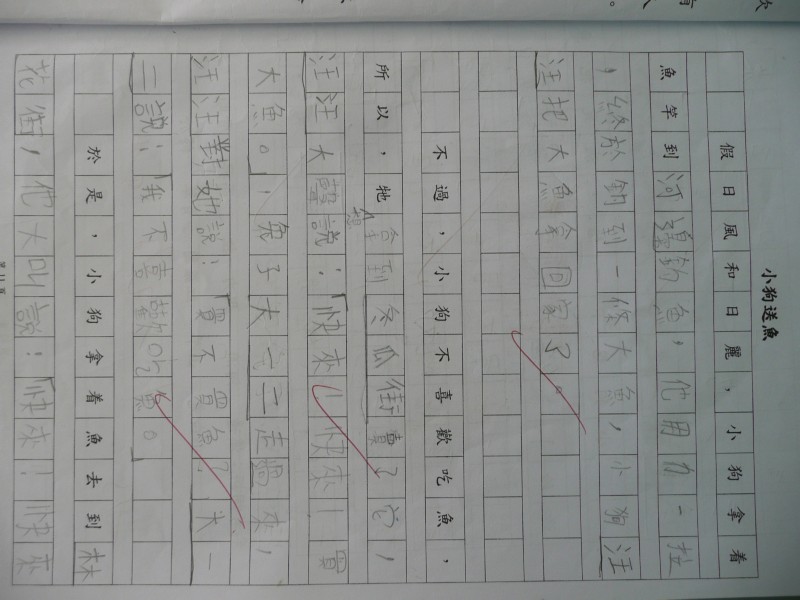 小狗送魚
假日風和日麗，小狗拿着
魚竿到河邊釣魚，他用力一拉
，終於釣到一條大魚，小狗汪
汪把大魚拿回家了。
不過，小狗不喜歡吃魚，
所以，牠想拿到冬瓜街賣了它，
汪汪大聲說：「快來！快來！買
大魚。，兔子大一二走過來，
汪汪對她說：「買不買魚？大一
二說：「我不喜歡吃魚。
於是，小狗拿着魚去到林
花街，他大叫說：「快來！快來